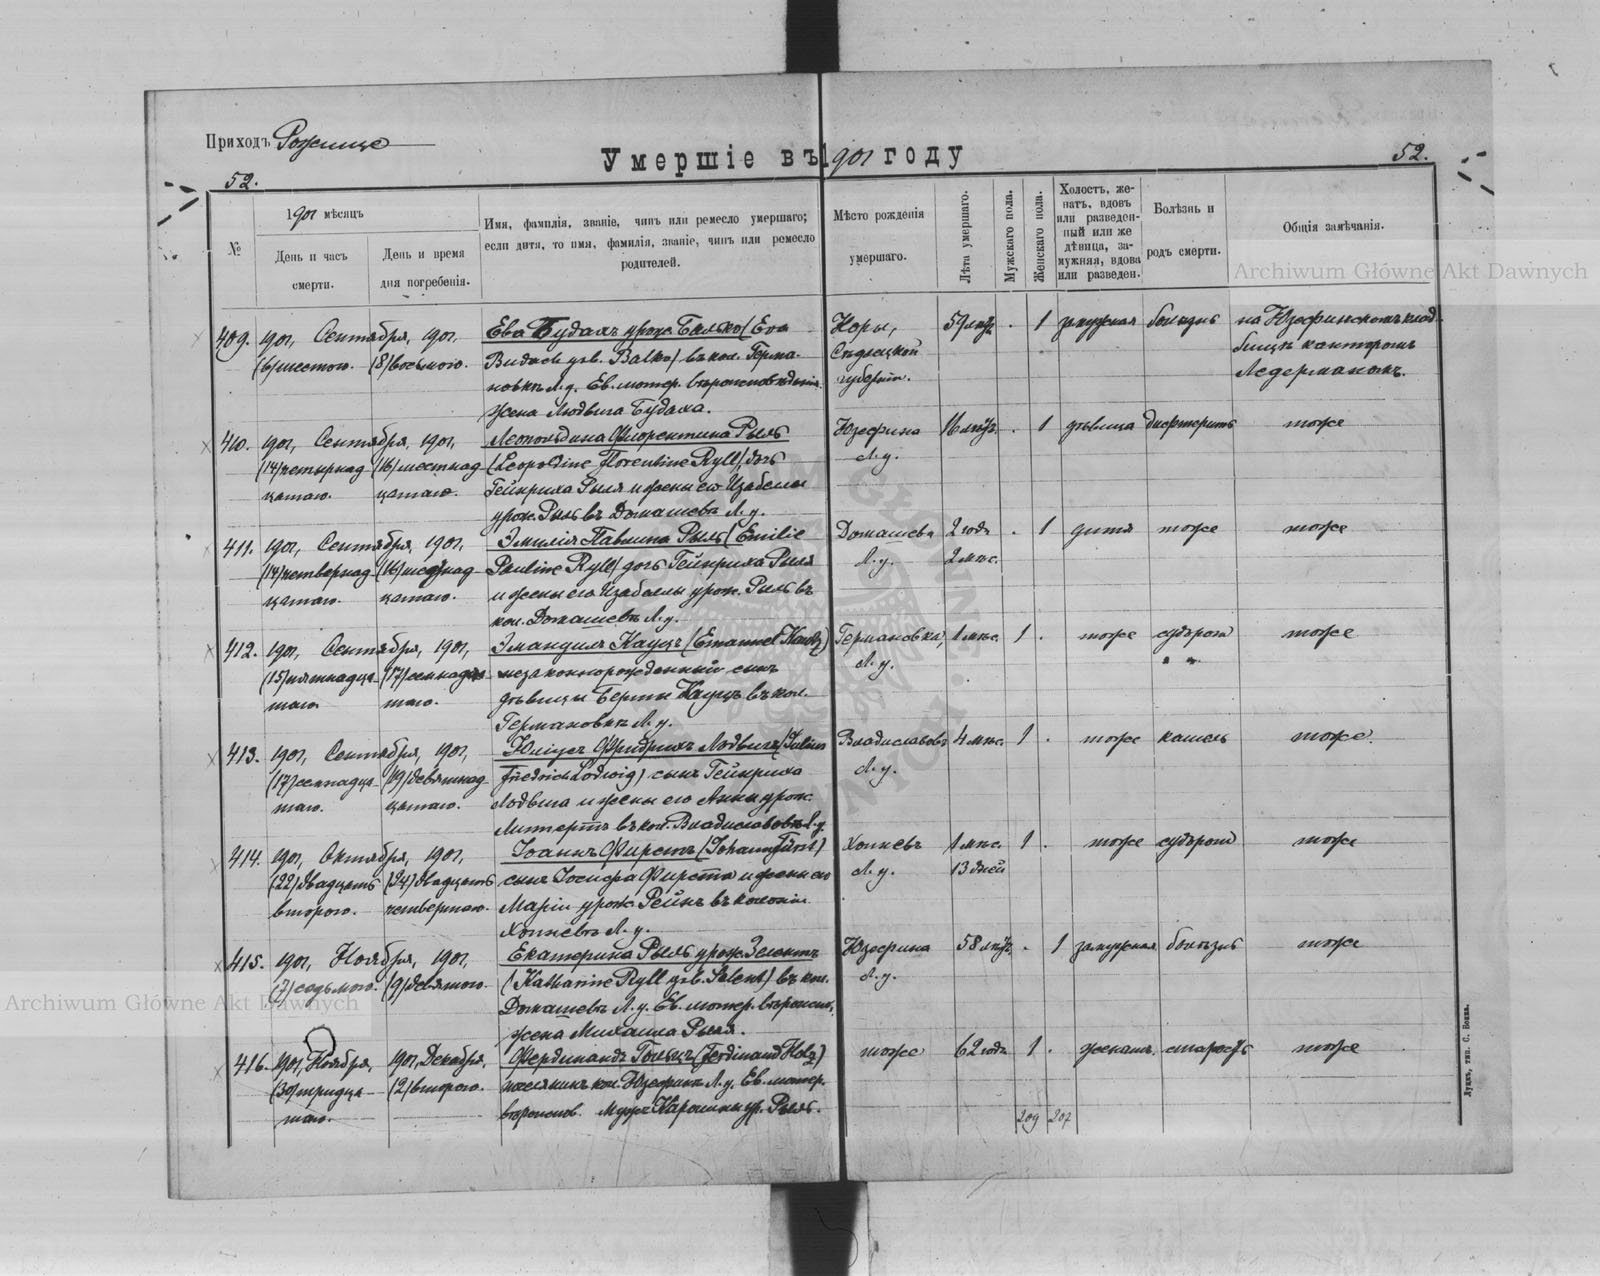 Приходъ Рожище
Умершіе въ 1901 году
52.
52.
№
1901 мѣсяцъ
День и часъ смерти.
День и время дня погребенія.
Имя, фамилія, званіе, чинъ или ремесло умершаго;
если дитя, то имя, фамилія, званіе, чинъ или ремесло
родителей.
Мѣсто рожденія
умершаго.
Лѣта умершаго.
Мужскаго пола.
Женскаго пола.
Холостъ, же-
натъ, вдовъ
или разведен-
ный или же
дѣвица, за-
мужняя, вдова
или разведен.
Болѣзнь и
родъ смерти.
Общія замѣчанія.
Archiwum Główne Akt Dawnych
409. 1901, Сентября, 1901, Ева Будахъ урож. Балько (Eva Коры, 59 лѣтъ . 1 замужняя болѣзнь на Юзефинскомъ клад-
(6) шестого. (8) восьмого. Будахъ geb. Balko) въ кол. Герма- Сѣдлецкой бищѣ канторомъ
новкѣ Л. у. Ев. лютер. вѣроисповѣданія губерніи. Ледерманомъ.
жена Людвига Будаха.
410. 1901, Сентября, 1901, Леопольдина Флорентина Рыль Юзефина 16 лѣтъ . 1 дѣвица дифтеритъ тоже
(14) четырнад- (16) шестнад- (Leopoldine Florentine Ryll), дочь Л. у.
цатаго. цатаго. Гейнриха Рыля и жены его Изабелы
урож. Рыль въ Домашевѣ Л. у.
411. 1901, Сентября, 1901, Эмилія Павлина Рыль (Emilie Домашево 2 года . 1 дитя тоже тоже
(14) четвернад- (16) шестнад- Pauline Ryll) дочь Гейнриха Рыля Л. у. 2 мѣс.
цатаго. цатаго. и жены его Изабелы урож. Рыль въ
кол. Домашевѣ Л. у.
412. 1901, Сентября, 1901, Эмануилъ Кауцъ (Emanuel Kautz) Германовка, 1 мѣс. 1 . тоже судороги тоже
(15) пятнадца- (17) семнадца- незаконнорожденный сынъ Л. у.
таго. таго. дѣвицы Берты Кауцъ въ кол.
Германовкѣ Л. у.
413. 1901, Сентября, 1901, Юліусъ Фридрихъ Людвигъ (Julius Владиславовъ 4 мѣс. 1 . тоже кашель тоже.
(17) семнадца- (19) девятнад- Friedrich Ludwig) сынъ Гейнриха Л. у.
таго. цатаго. Людвига и жены его Анны урож.
въ кол. Владиславовкѣ Л. у.
414. 1901, Октября, 1901, Іоаннъ Фирстъ (Johann Fürst) Хопневъ 1 мѣс. 1 . тоже судороги тоже
(22) двадцать (24) двадцать сынъ Іосифа Фирста и жены его Л. у. 13 дней
второго. четвертаго. Маріи урож. Рейнъ въ колоніи
Хопневѣ Л. у.
415. 1901, Ноября, 1901, Екатерина Рыль урож. Зелентъ Юзефина 58 лѣтъ . 1 замужняя болѣзнь тоже
(7) седьмого. (9) девятого. (Katharine Ryll geb. Selent) въ кол. Л. у.
Домашевѣ Л. у. Ев. лютер. вѣроисп.
жена Михаила Рыля.
416. 1901, Ноября, 1901, Декабря, Фердинандъ Гольцъ (Ferdinand Holz) тоже 62 года 1 . женатъ. старость тоже
(30) тридца- (2) второго. поселянинъ кол. Юзефинъ Л. у. Ев. лютер.
таго. вѣроиспов. мужъ Каролины ур. Рыль.
209 207
Archiwum Główne Akt Dawnych
Луцкъ, тип. С. Бокка.